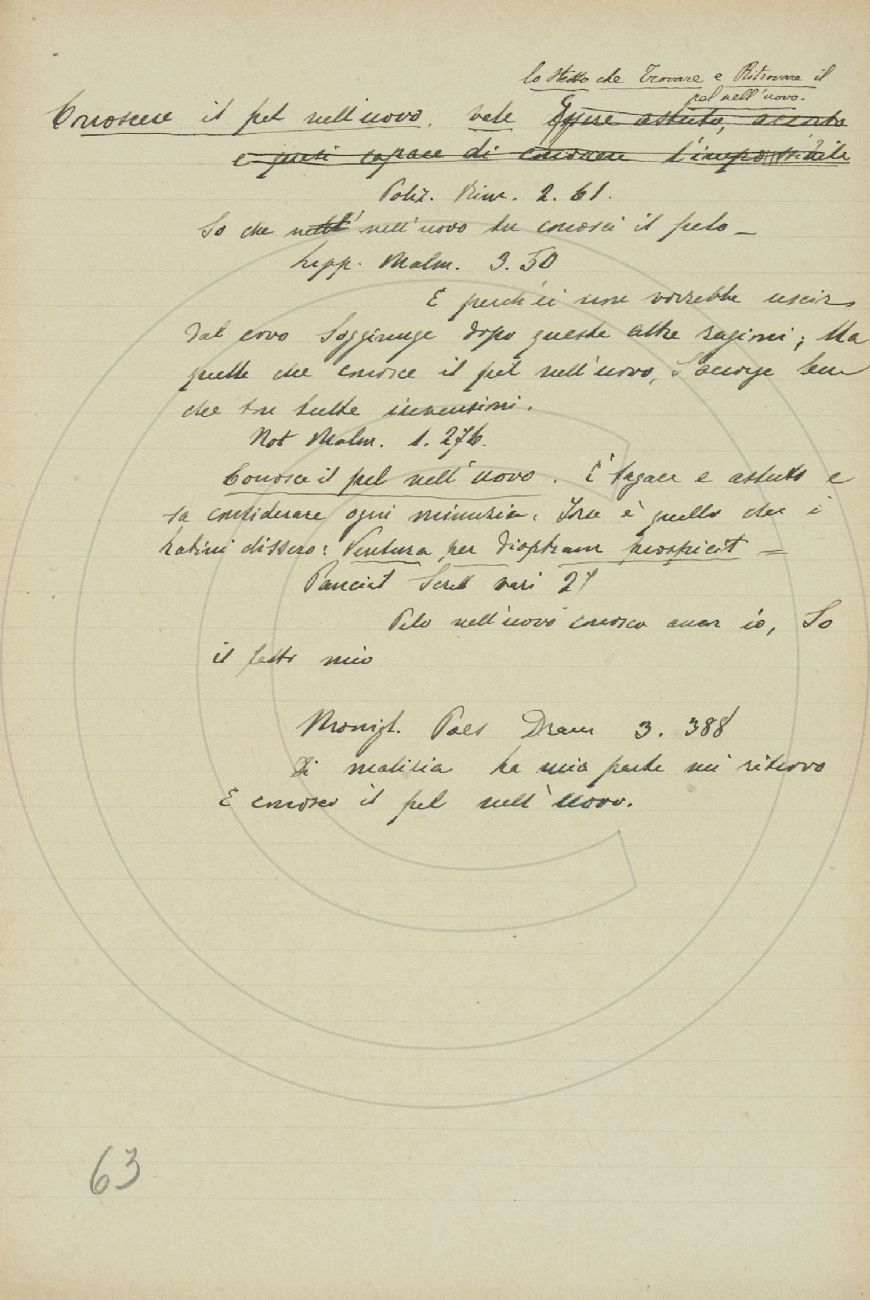 lo stesso che Trovare e Ritrovare il
pel nell'uovo.
Conoscere il pel nell'uovo. vale Essere astuto, accorto
e quasi capace di conoscere l'impossibile
Poliz. Rim. 2. 61.
So che nell' nell'uovo tu conosci il pelo –
Lipp. Malm. 3. 50
E perch'ei non vorrebbe uscir
dal covo Soggiunge dopo queste altre ragioni; Ma
quella che conosce il pel nell'uovo, S'accorge ben
che son tutte invenzioni.
Not Malm. 1. 276.
Conosce il pel nell'uovo. È sagace e astuto e
sa considerare ogni minuzia. Forse è quello che i
Latini dissero: Ventura per dioptram prospicit –
Panciat Scritt vari 27
Pelo nell'uovo conosco ancor io, So
il fatto mio
Monigl. Poes Dram 3. 388
Di malizia la mia parte mi ritrovo
E conosco il pel nell'uovo.
63